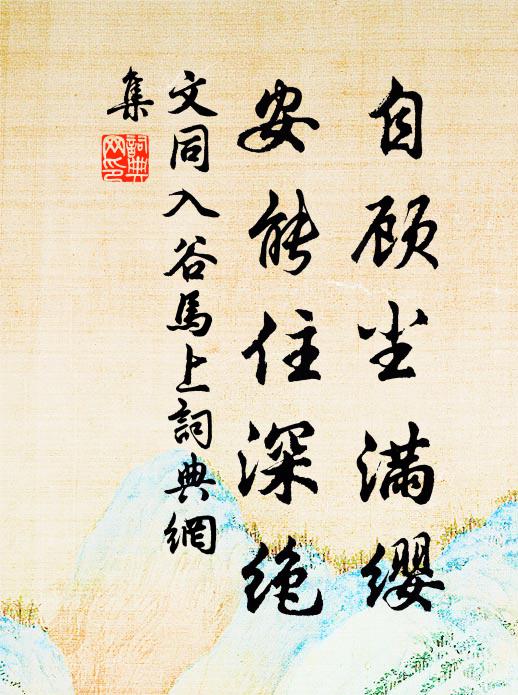 自顾尘满缨
安能住深绝
文同入谷馬上詞典網
集
詞典網印